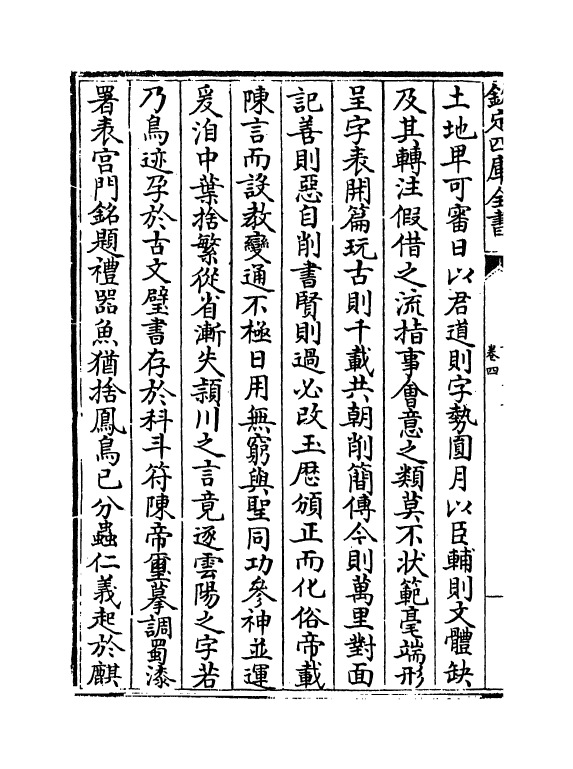 欽定四庫全書
卷四
土地卑可審日以君道則字勢圓月以臣輔則文體缺
及其轉注假借之流指事會意之類莫不状範毫端形
呈字表開篇玩古則千載共朝削簡傳今則萬里對面
記善則惡自削書賢則過必改玉厯頒正而化俗帝載
陳言而設教變通不極日用無窮與聖同功參神並運
爰洎中葉捨繁從省漸失潁川之言竟逐雲陽之字若
乃鳥迹孕於古文壁書存於科斗符陳帝璽摹調蜀漆
署表宫門銘題禮器魚猶捨鳳鳥已分蟲仁義起於麒